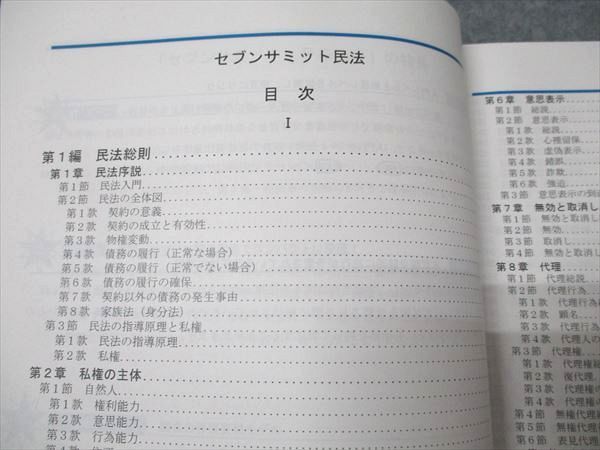 セブンサミット民法
目 次
I
第1編 民法総則
第1章 民法序説
第1節 民法入門
第2節 民法の全体図
第1款 契約の意義
第2款 契約の成立と有効性
第3款 物権変動
第4款 債務の履行（正常な場合）
第5款 債務の履行（正常でない場合）
第6款 債務の履行の確保
第7款 契約以外の債務の発生事由
第8款 家族法（身分法）
第3節 民法の指導原理と私権
第1款 民法の指導原理
第2款 私権
第2章 私権の主体
第1節 自然人
第1款 権利能力
第2款 意思能力
第3款 行為能力
第6章 意思表示
第1節 総説
第2節 意思表示
第1款 総説
第2款 心裡留保
第3款 虚偽表示
第4款 錯誤
第5款 詐欺
第6款 強迫
第3節 意思表示の到
第7章 無効と取消し
第1節 無効と取消し
第2節 無効
第3節 取消し
第4節 無効と取消し
第8章 代理
第1節 代理総説
第2節 代理行為
第1款 代理行為
第2款 顕名
第3款 代理行為
第4款 代理人の
第3節 代理権
第1款 代理権総
第2款 復代理
第3款 代理権の
第4款 代理権の
第4節 無権代理
第5節 無権代理
第6節 表見代理